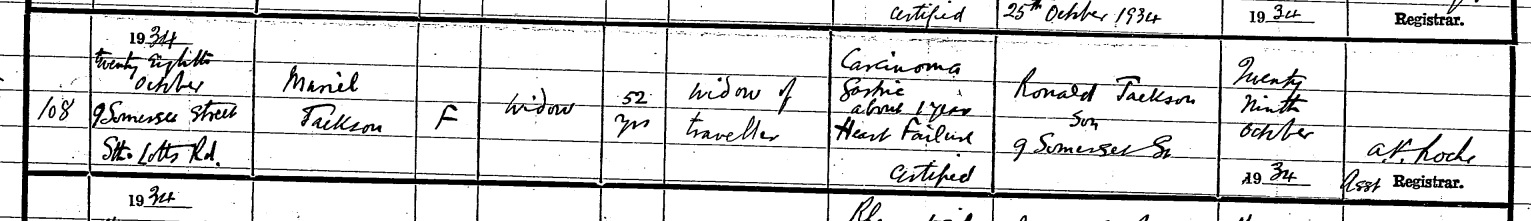 certified
25th October 1934
1934
Registrar.
1934
twenty Eighth
October
9 Somerset Street
Sth Lotts Rd.
108
Muriel
Jackson
F
Widow
52
yrs
Widow of
traveller
Carcinoma
Gastric
about 1 year
Heart Failure
certified
Ronald Jackson
Son
9 Somerset St
Twenty
Ninth
October
1934
A.V. Roche
Asst Registrar.
1934